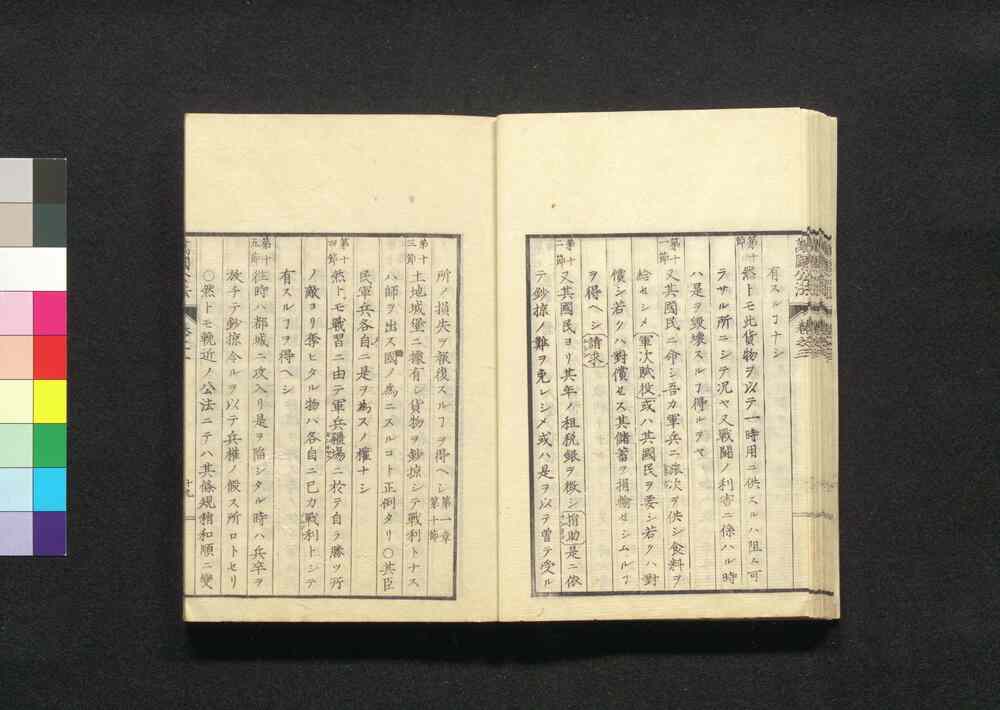 有スルヿナシ
第十節 然トモ此貨物ヲ以テ一時用ニ供スルハ阻ム可
ラサル所ニシテ況ヤ又戰鬪ノ利害ニ係ハル時
ハ是ヲ毀壞スルヿ得ルヲヤ
第十一節 又其國民ニ命シ吾カ軍兵ニ 次ヲ供シ食料ヲ
給セシメ 軍次賦役 或ハ其國民ヲ要シ若クハ對
償シ若クハ對償セス其儲蓄ヲ捐輸セシムルヿ
ヲ得ヘシ 請求
第十二節 又其國民ヨリ其年ノ租税銀ヲ徴シ 捐助 是ニ依
テ鈔掠ノ難ヲ免レシメ或ハ是ヲ以テ曽テ受ル
所ノ損失ヲ報復スルヿヲ得ヘシ 第一章第十節
第十三節 土地城堡ニ據有シ貨物ヲ鈔掠シテ戰利トナス
ハ師ヲ出ス國ノ爲ニスルコト正例タリ○其臣
民軍兵各自ニ是ヲ爲スノ權ナシ
第十四節 然トモ戰習ニ由テ軍兵 場ニ於テ自ラ勝ツ所
ノ敵ヨリ奪ヒタル物ハ各自ニ己カ戰利トシテ
有スルヿヲ得ヘシ
第十五節 往時ハ都城ニ攻入リ是ヲ陷シタル時ハ兵卒ヲ
放チテ鈔掠令ルヲ以テ兵權ノ假ス所ロトセリ
○然トモ輓近ノ公法ニテハ其條規稍和順ニ變
十九